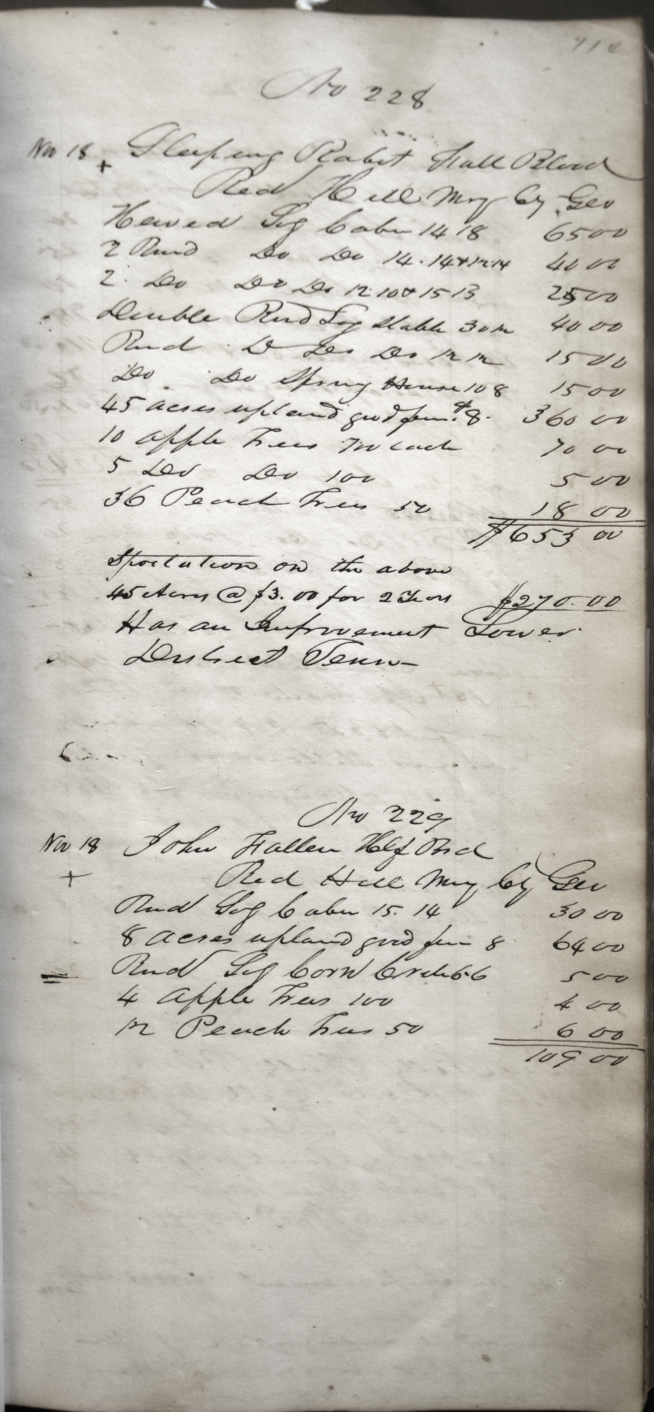 No 228
Nov 18 Sleeping Rabit Full Blood
+ Red Hill Mry Cty Geo
Hewed Log Cabin 14 18 65 00
2 Rnd Do Do 14.14 & 12.14 40 00
2 Do Do Do 12 10 & 15 13 25 00
Double Rnd Log Stable 30 12 40 00
Rnd D Do Do 12 12 15 00
Do Do Spring House 10 8 15 00
45 acres upland good fen. $8. 360 00
10 Apple Trees 700 each 70 00
5 Do Do 100 5 00
36 Peach Trees 50 18 00
$653 00
Spoliation on the above
45 Acres @ $3.00 for 2 Years $270.00
Has an Improvement Lower
District Tenn
No 229
Nov 18 John Fallen Hlf Brd
+ Red Hill Mry Cty Geo
Rnd Log Cabin 15. 14 30 00
8 acres upland good fen 8 64 00
Rnd Log Corn Crib 6 6 5 00
4 Apple Trees 100 4 00
12 Peach Trees 50 6 00
109 00